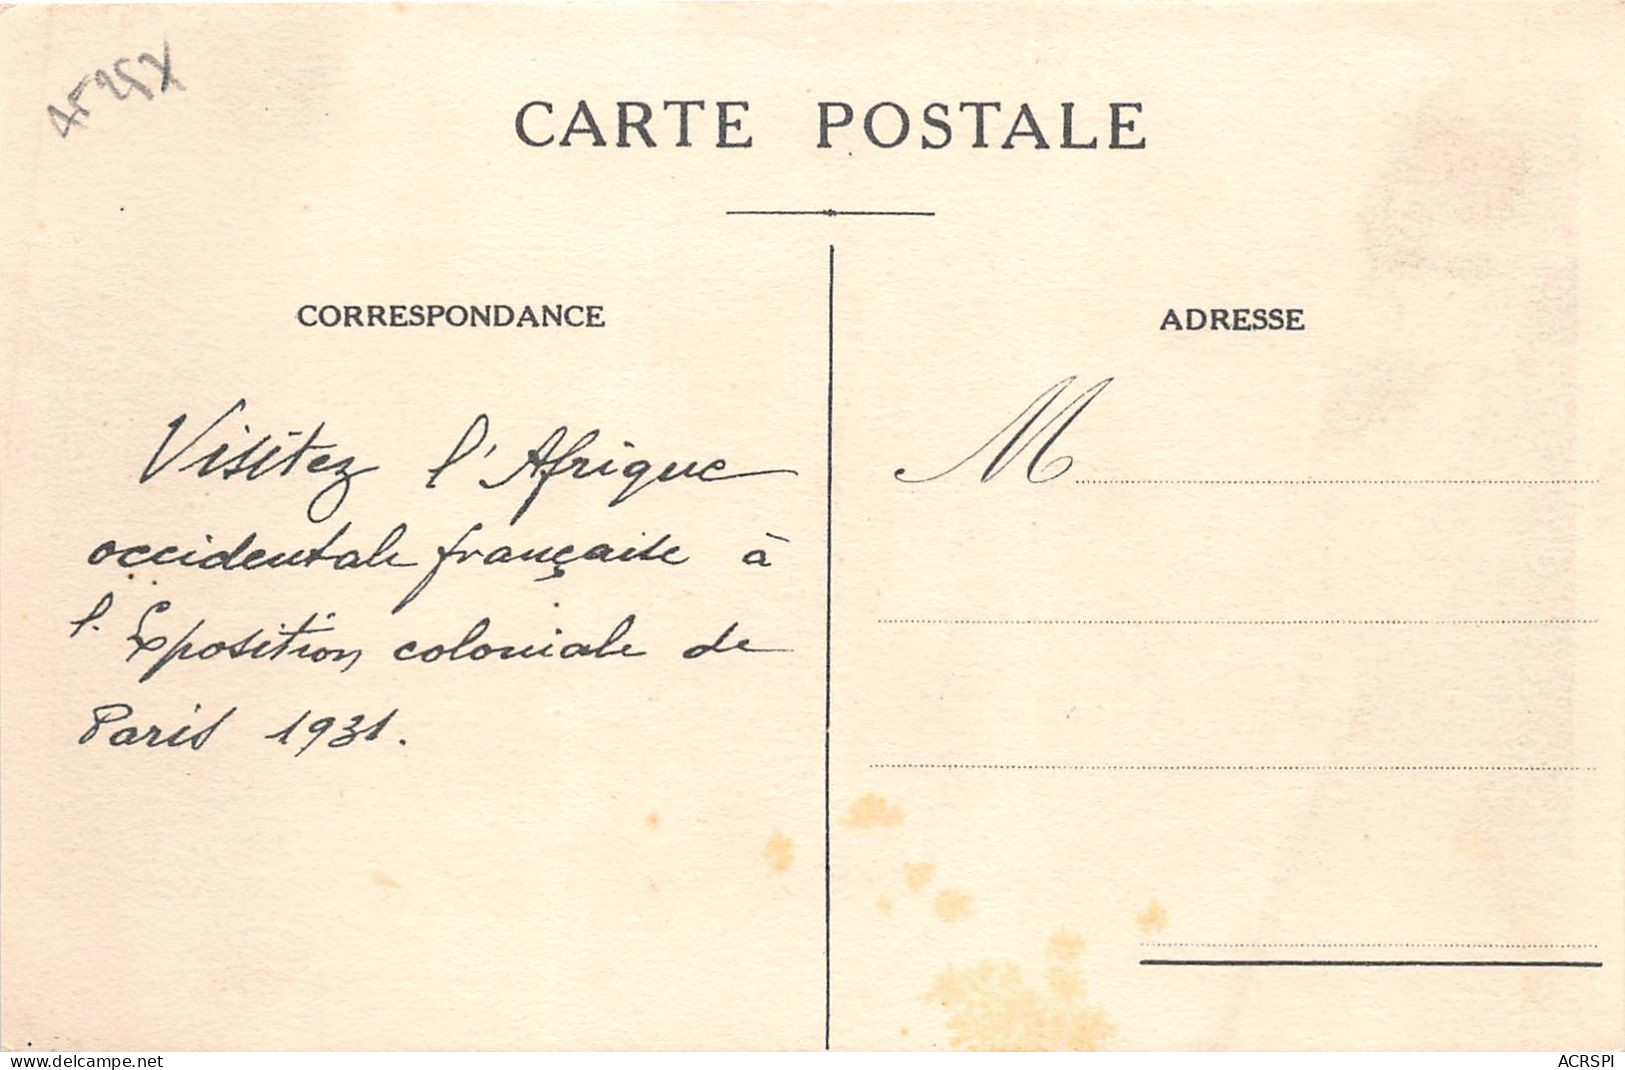 CARTE POSTALE
CORRESPONDANCE
ADRESSE
M
Visitez l'Afrique
occidentale française à
l'Exposition coloniale de
Paris 1931.
www.delcampe.net
ACRSPI